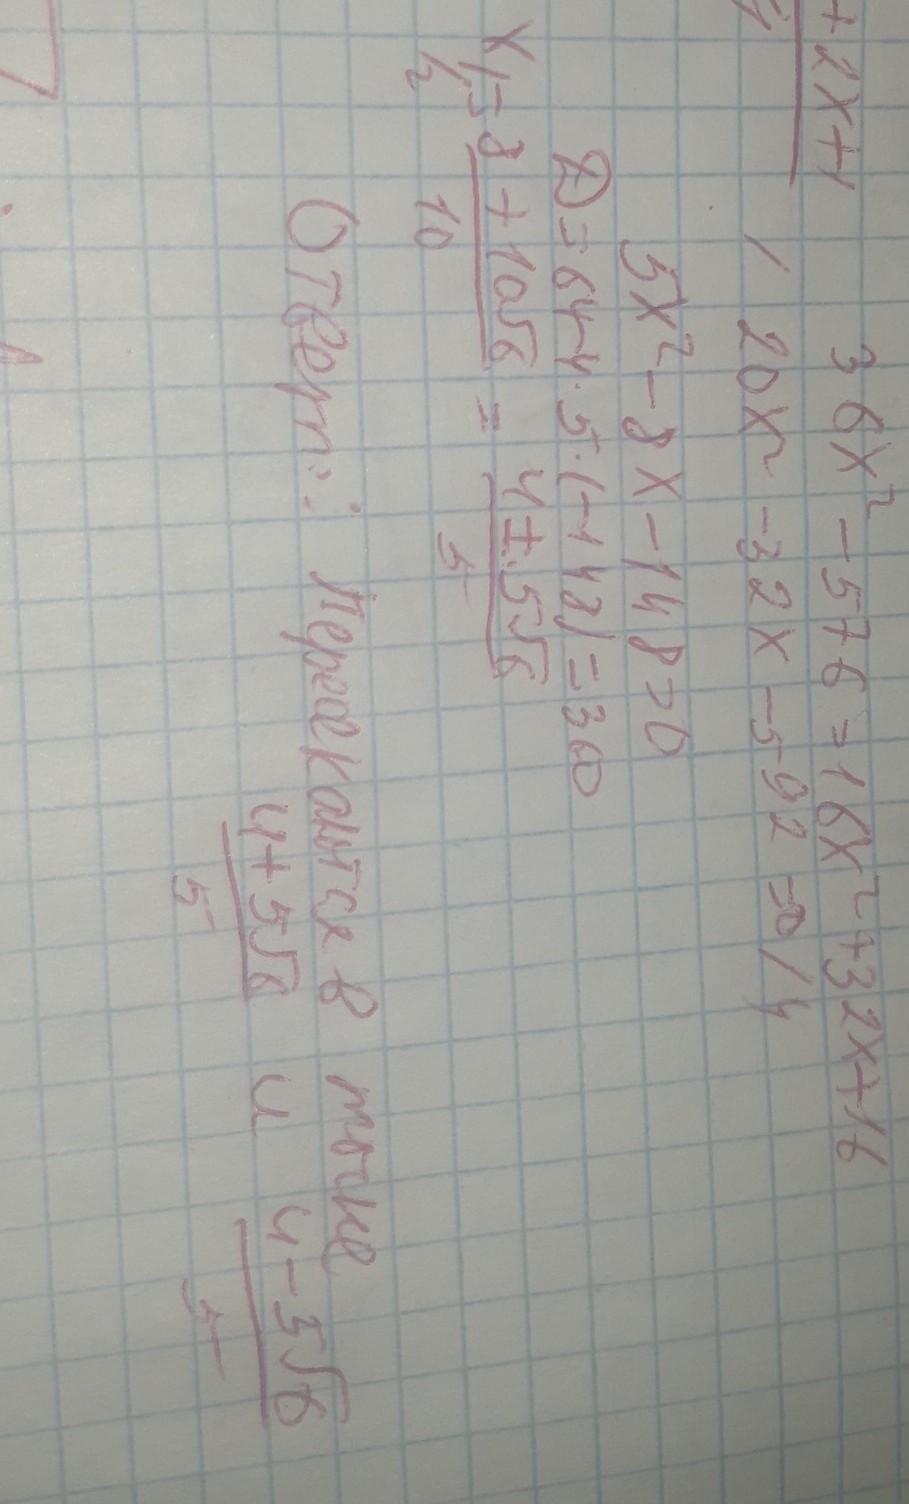 +2x+1
36x² - 576 = 16x² + 32x + 16
20x² - 32x - 592 = 0 / 4
5x² - 8x - 148 = 0
D = 64 - 4 · 5 · (-148) = 300
x₁,₂ = 8 ± 10√6 / 10 = 4 ± 5√6 / 5
Ответ: Пересекаются в точке
4 + 5√6 / 5 и 4 - 5√6 / 5